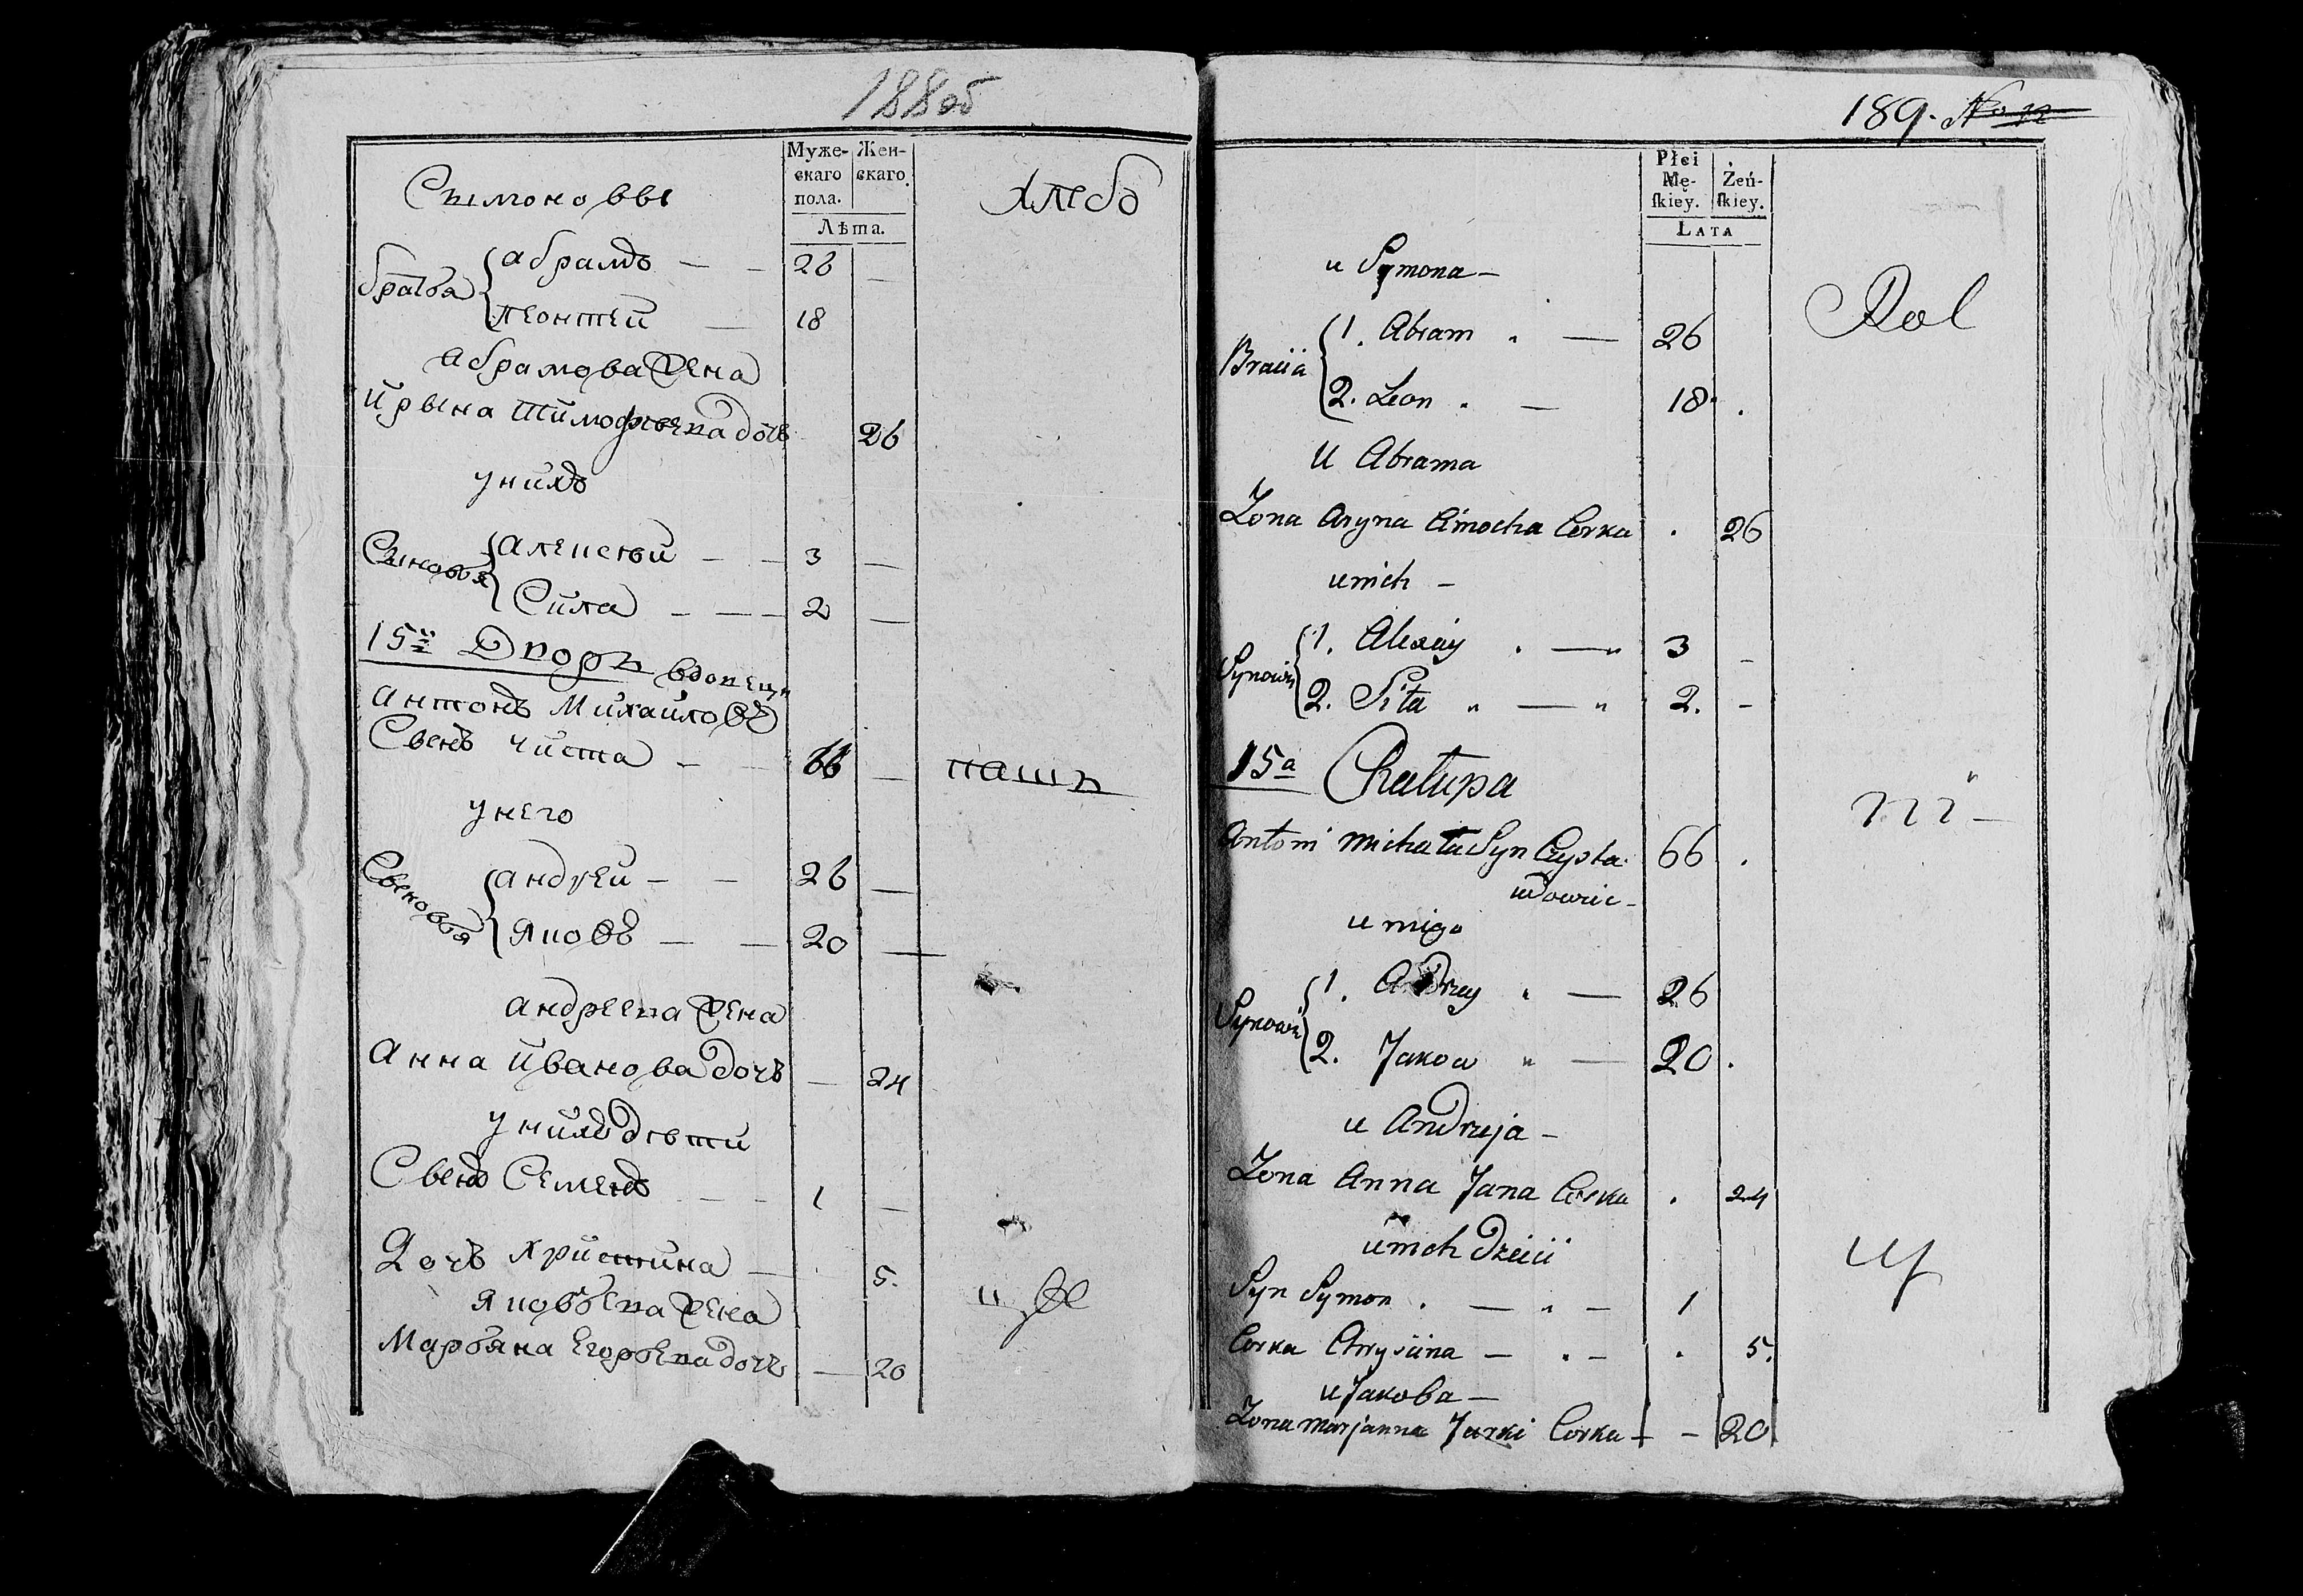 188об
Муже-
скаго
пола.
Жен-
скаго.
Лѣта.
Сымоновы
хлебо
братья
абрамъ — — 26 —
леонтей — 18
абрамова жена
ирына тимофѣева дочь 26
у нихъ
Сыновья
алексѣй — — 3 —
Сила — — — 2 —
15й Дворъ вдовецъ
антонъ Михайловъ
Сынъ чиста — — 66 — паш
у него
Сыновья
андрей — — 26 —
яковъ — — 20 —
андреева жена
анна иванова дочь — 24
у нихъ дѣти
Сынъ Семенъ — — 1 —
Дочь христина — 5.
яковьева жена
Марьяна егорьева дочь — 20
189. No 12
Płci
Mę-
ſkiey.
Żeń-
ſkiey.
LATA
u Symona —
Rol
Bracia
1. Abram — 26
2. Leon — 18
U Abrama
Zona Aryna Cimocha Corka 26
u nich —
Synowie
1. Alexiey — 3 —
2. Siła — 2. —
15a Chałupa
Antoni Michała Syn Czysta 66
wdowiec —
u niego
Synowie
1. Andrzey — 26
2. Jakow — 20
u Andrzeja —
Zona Anna Jana Corka 24
u nich Dzieci
Syn Symon — — 1
Corka Chryscina — — 5.
u Jakoba —
Zona Marjanna Jurki Corka — — 20